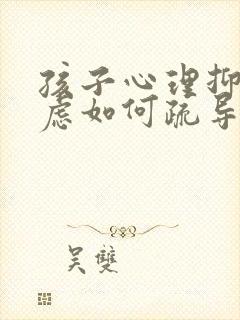 孩子心理抑
虑如何疏导
吴双